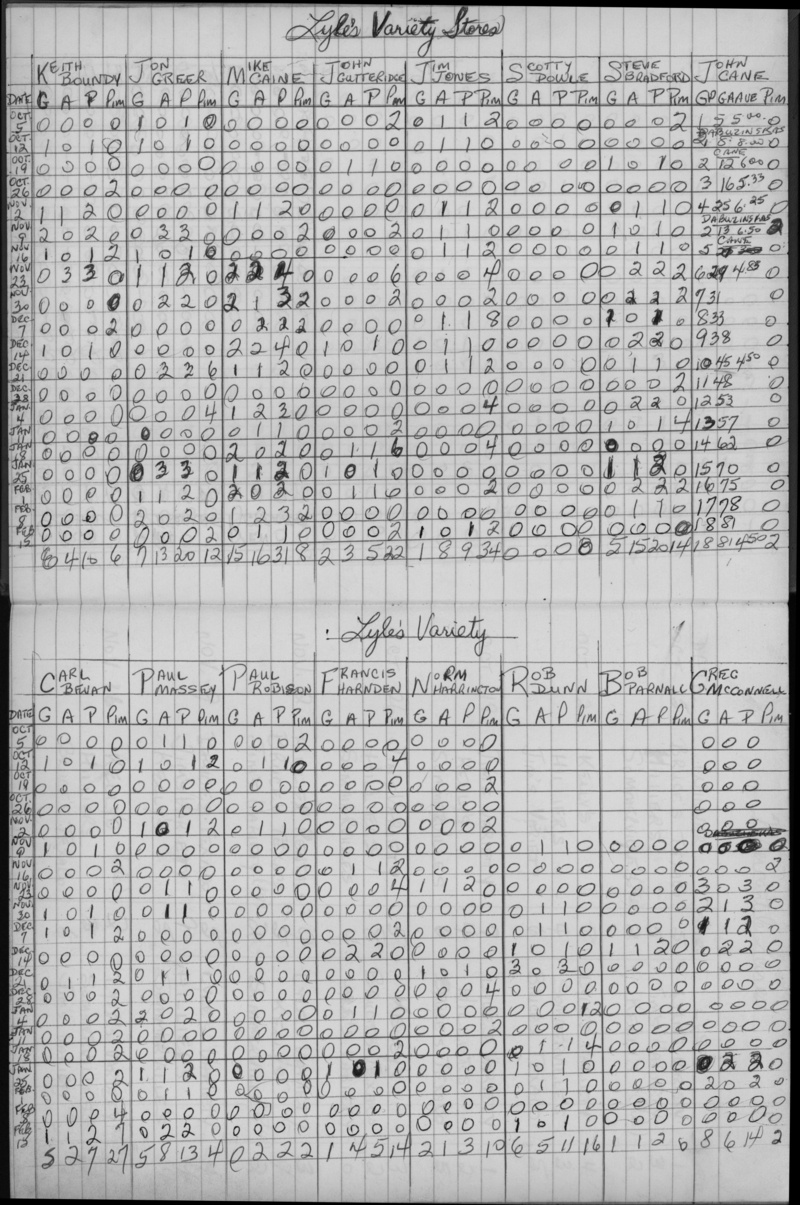 Lyle's Variety Stores
KEITH BOUNDY JON GREER MIKE MCAINE JOHN GUTTERIDGE JIM JONES SCOTTY DOWLE STEVE BRADFORD JOHN CANE
DATE G A P Pim G A P Pim G A P Pim G A P Pim G A P Pim G A P Pim G A P Pim GP GA AVE Pim
OCT 5 0 0 0 0 1 0 1 0 0 0 0 0 0 0 0 2 0 1 1 2 0 0 0 0 0 0 0 2 1 5 5.00 0
OCT 12 1 0 1 0 1 0 1 0 0 0 0 0 0 0 0 0 0 1 1 0 0 0 0 0 0 0 0 0
OCT 19 0 0 0 0 0 0 0 0 0 0 0 0 0 1 1 0 0 0 0 0 0 0 0 0 1 0 1 0 CANE 2 12 6.00 0
OCT 26 0 0 0 2 0 0 0 0 0 0 0 0 0 0 0 0 0 0 0 0 0 0 0 0 0 0 0 0 3 16 5.33 0
NOV 2 1 1 2 0 0 0 0 0 1 1 2 0 0 0 0 0 0 1 1 2 0 0 0 0 0 1 1 0 4 25 6.25 0
NOV 9 2 0 2 0 0 3 3 0 0 0 0 2 0 0 0 2 0 1 1 0 0 0 0 0 1 0 1 0 2 13 6.50 2
NOV 16 1 0 1 2 1 0 1 0 0 0 0 0 0 0 0 0 0 1 1 2 0 0 0 0 0 1 1 0 CANE 5 0
NOV 23 0 3 3 0 1 1 2 0 2 2 4 0 0 0 0 6 0 0 0 4 0 0 0 0 0 2 2 2 6 29 4.83 0
NOV 30 0 0 0 0 0 2 2 0 2 1 3 2 0 0 0 2 0 0 0 2 0 0 0 0 0 2 2 2 7 31 0
DEC 7 0 0 0 2 0 0 0 0 0 2 2 2 0 0 0 0 0 1 1 8 0 0 0 0 1 0 1 0 8 33 0
DEC 14 1 0 1 0 0 0 0 0 2 2 4 0 1 0 1 0 0 1 1 0 0 0 0 0 0 2 2 0 9 38 0
DEC 21 0 0 0 0 0 3 3 6 1 1 2 0 0 0 0 0 0 1 1 2 0 0 0 0 0 1 1 0 10 45 4.50 0
DEC 28 0 0 0 0 0 0 0 0 0 0 0 0 0 0 0 0 0 0 0 0 0 0 0 0 0 0 0 2 11 48 0
JAN 4 0 0 0 0 0 0 0 4 1 2 3 0 0 0 0 0 0 0 0 4 0 0 0 0 0 2 2 0 12 53 0
JAN 11 0 0 0 0 0 0 0 0 0 1 1 0 0 0 0 2 0 0 0 0 0 0 0 0 1 0 1 4 13 57 0
JAN 18 0 0 0 0 0 0 0 0 2 0 2 0 0 1 1 6 0 0 0 4 0 0 0 0 0 0 0 0 14 62 0
JAN 25 0 0 0 0 0 3 3 0 1 1 2 0 1 0 1 0 0 0 0 0 0 0 0 0 1 1 2 0 15 70 0
FEB 1 0 0 0 0 1 1 2 0 2 0 2 0 0 1 1 0 0 0 0 2 0 0 0 0 0 2 2 2 16 75 0
FEB 8 0 0 0 0 2 0 2 0 1 2 3 2 0 0 0 0 0 0 0 0 0 0 0 0 0 1 1 0 17 78 0
FEB 15 0 0 0 0 0 0 0 2 0 1 1 0 0 0 0 2 1 0 1 2 0 0 0 0 0 0 0 0 18 81 0
6 4 10 6 7 13 20 12 15 16 31 8 2 3 5 22 1 8 9 34 0 0 0 0 5 15 20 14 18 81 4.50 2
Lyle's Variety
CARL BEWAN PAUL MASSEY PAUL ROBISON FRANCIS HARNDEN NORM HARRINGTON ROB DUNN BOB PARNALL GREG MCCONNELL
DATE G A P Pim G A P Pim G A P Pim G A P Pim G A P Pim G A P Pim G A P Pim G A P Pim
OCT 5 0 0 0 0 0 1 1 0 0 0 0 2 0 0 0 0 0 0 0 0 0 0 0
OCT 12 1 0 1 0 1 0 1 2 0 1 1 0 0 0 0 4 0 0 0 0 0 0 0
OCT 19 0 0 0 0 0 0 0 0 0 0 0 0 0 0 0 0 0 0 0 2 0 0 0
OCT 26 0 0 0 0 0 0 0 0 0 0 0 0 0 0 0 0 0 0 0 0 0 0 0
NOV 2 0 0 0 0 1 0 1 2 0 1 1 0 0 0 0 0 0 0 0 2 0 0 0
NOV 9 1 0 1 0 0 0 0 0 0 0 0 0 0 0 0 0 0 0 0 0 0 1 1 0 0 0 0 0 0 0 0 0
NOV 16 0 0 0 2 0 0 0 0 0 0 0 0 0 1 1 2 0 0 0 0 0 0 0 0 0 0 0 0 0 0 0 2
NOV 23 0 0 0 0 0 1 1 0 0 0 0 0 0 0 0 4 1 1 2 0 0 0 0 0 0 0 0 0 3 0 3 0
NOV 30 1 0 1 0 0 1 1 0 0 0 0 0 0 0 0 0 0 0 0 0 0 1 1 0 0 0 0 0 2 1 3 0
DEC 7 1 0 1 2 0 0 0 0 0 0 0 0 0 0 0 2 0 0 0 0 0 1 1 0 0 0 0 0 1 1 2 0
DEC 14 0 0 0 0 0 0 0 0 0 0 0 0 0 2 2 0 0 0 0 0 1 0 1 0 1 1 2 0 0 2 2 0
DEC 21 0 1 1 2 0 1 1 0 0 0 0 0 0 0 0 0 1 0 1 0 3 0 3 0 0 0 0 0 0 0 0 0
DEC 28 0 0 0 2 0 0 0 0 0 0 0 0 0 0 0 0 0 0 0 4 0 0 0 0 0 0 0 0 0 0 0 0
JAN 4 0 0 0 2 2 0 2 0 0 0 0 0 0 1 1 0 0 0 0 0 0 0 0 12 0 0 0 0 0 0 0 0
JAN 11 0 0 0 2 0 0 0 0 0 0 0 0 0 0 0 0 0 0 0 2 0 0 0 0 0 0 0 0 0 0 0 0
JAN 18 0 0 0 2 0 0 0 0 0 0 0 0 0 0 0 2 0 0 0 0 0 1 1 4 0 0 0 0 0 0 0 0
JAN 25 0 0 0 2 1 1 2 0 0 0 0 0 1 0 1 0 0 0 0 0 1 0 1 0 0 0 0 0 0 2 2 0
FEB 0 0 0 0 0 1 1 0 0 0 0 0 0 0 0 0 0 0 0 0 0 1 1 0 0 0 0 0 2 0 2 0
FEB 8 0 0 0 4 0 0 0 0 0 0 0 0 0 0 0 0 0 0 0 0 0 0 0 0 0 0 0 0 0 0 0 0
FEB 15 1 1 2 7 0 2 2 0 0 0 0 0 0 0 0 0 0 0 0 0 1 0 1 0 0 0 0 0 0 0 0 0
5 2 7 27 5 8 13 4 0 2 2 2 1 4 5 14 2 1 3 10 6 5 11 16 1 1 2 0 8 6 14 2